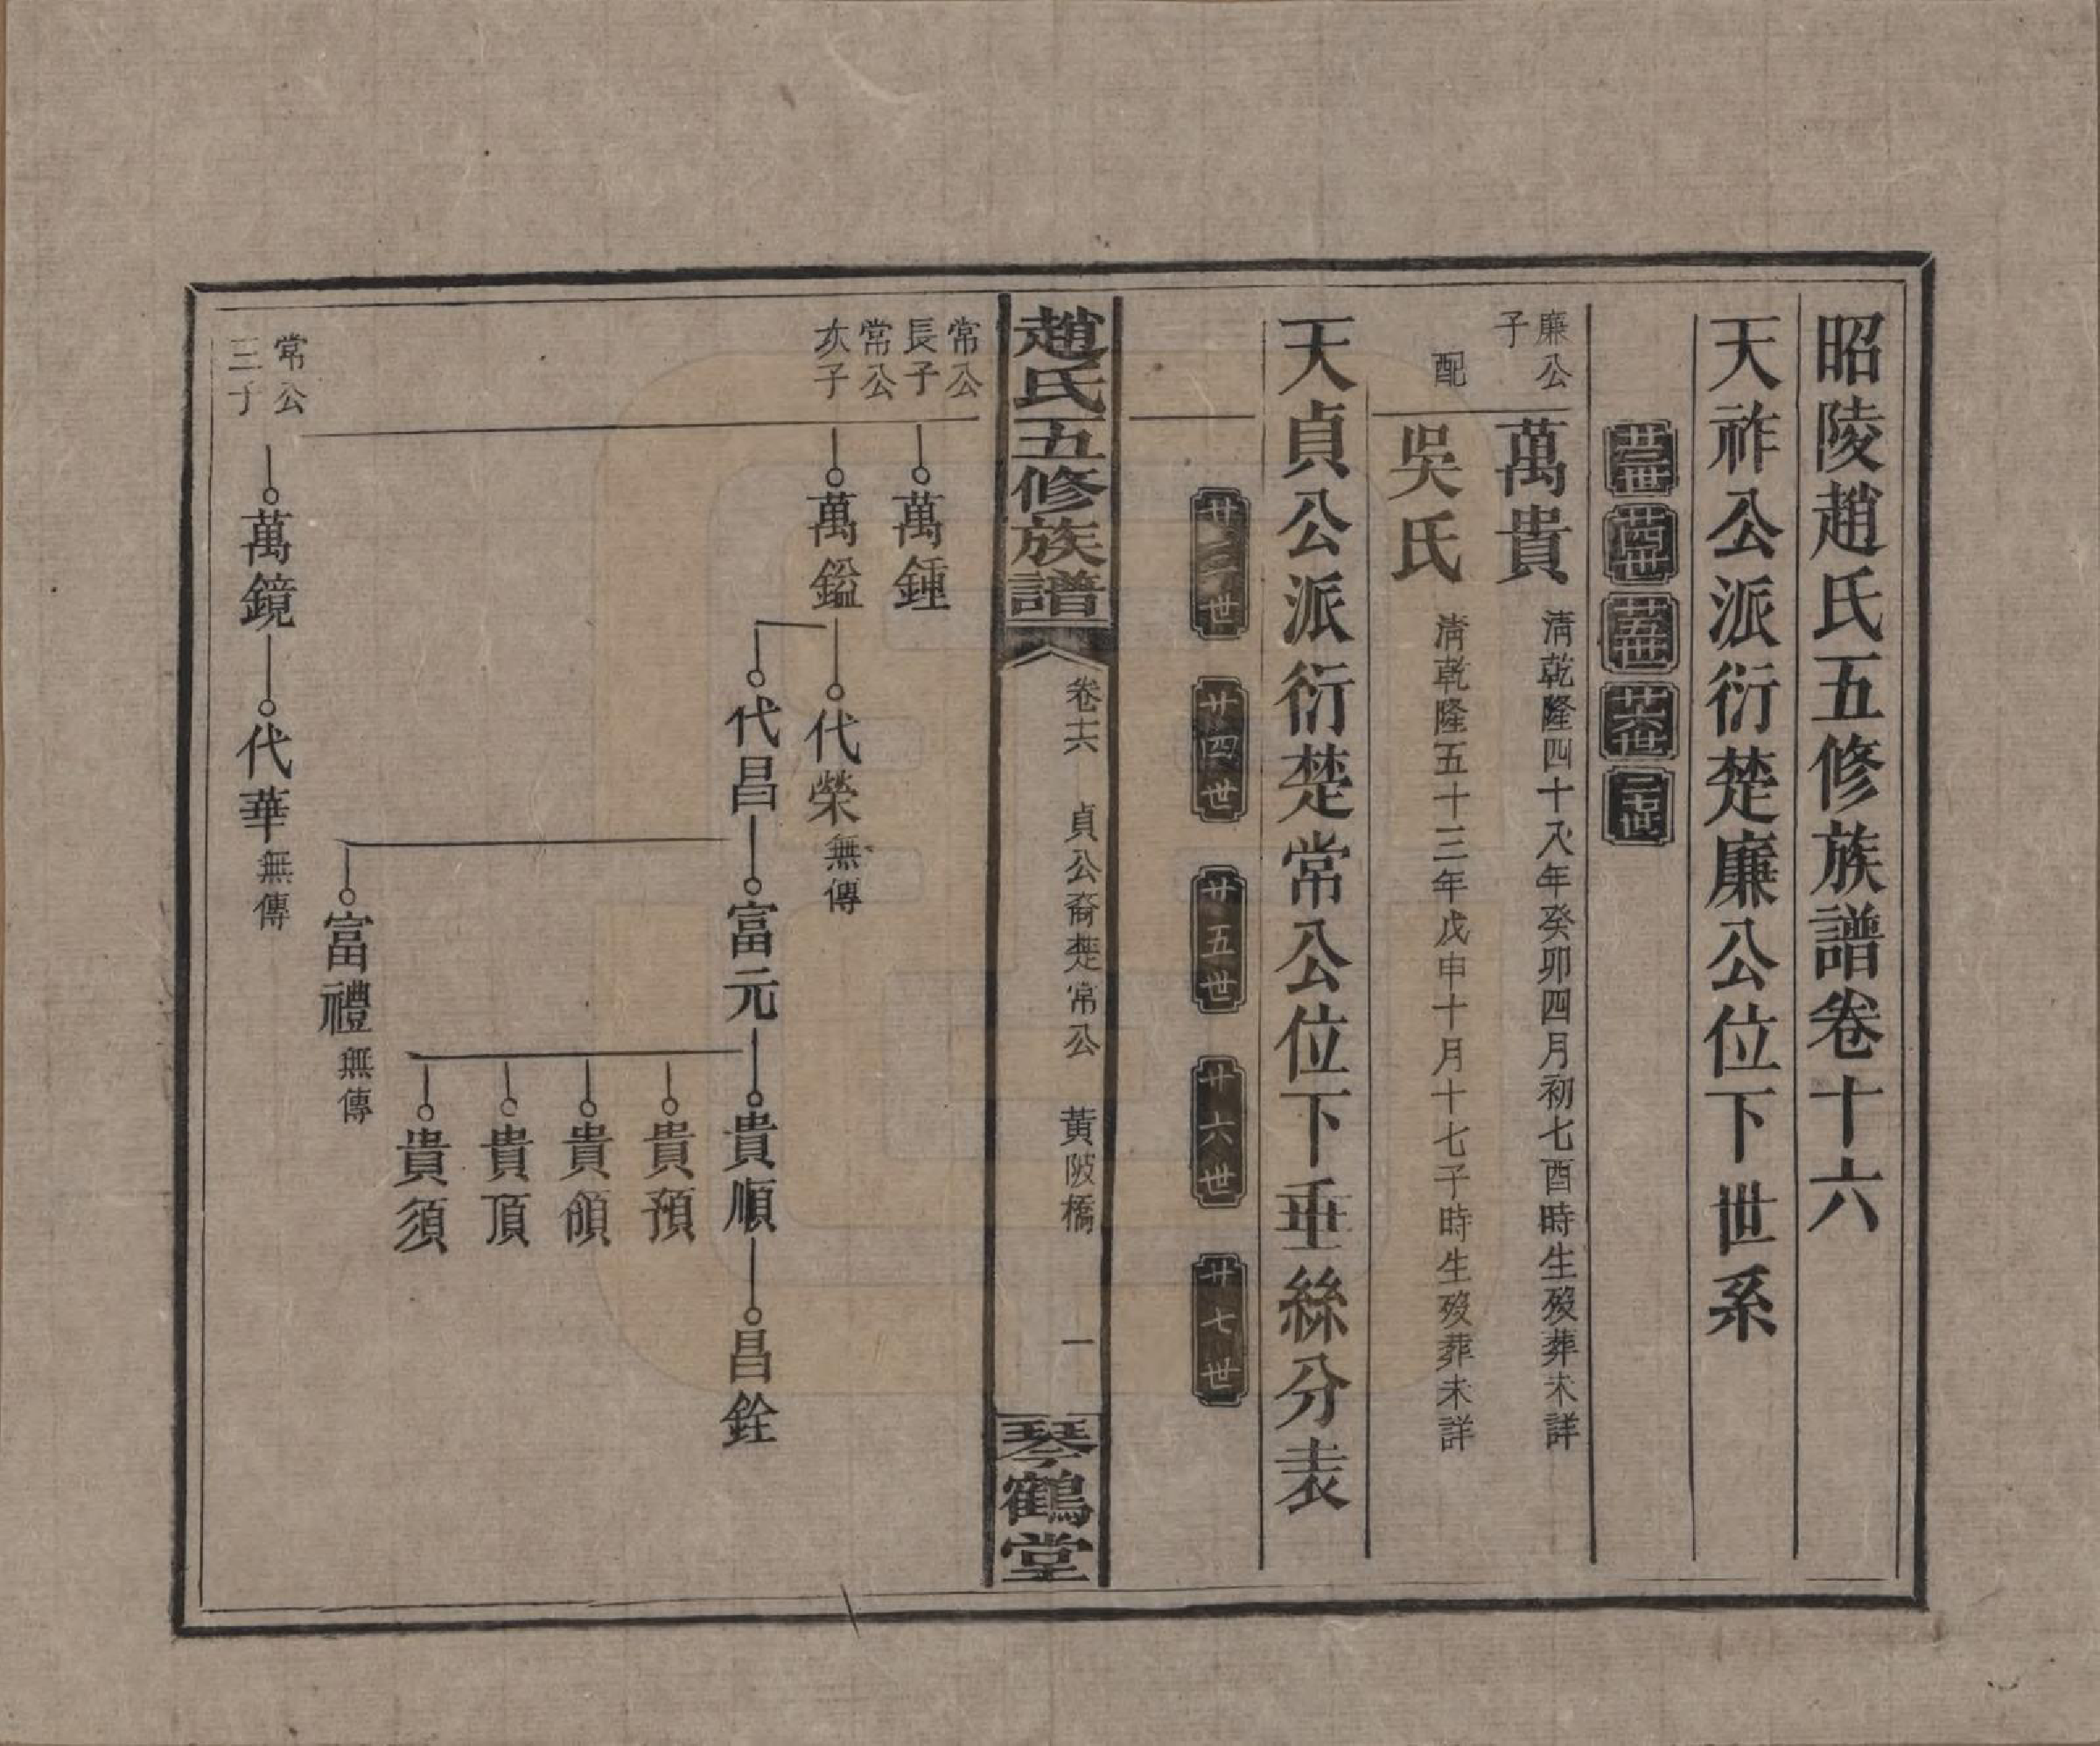 昭陵趙氏五修族譜卷十六
天祚公派衍楚廉公位下世系
廿三世 廿四世 廿五世 廿六世 二七世
廉公子
萬貴 清乾隆四十八年癸卯四月初七酉時生歿葬未詳
配
吳氏 清乾隆五十三年戊申十月十七子時生歿葬未詳
天貞公派衍楚常公位下垂絲分表
廿三世 廿四世 廿五世 廿六世 廿七世
趙氏五修族譜 卷十六 貞公裔楚常公 黃陂橋 一 琴鶴堂
常公長子
萬鍾
常公次子
萬鎰
代榮 無傳
代昌
富元
貴順
昌銓
貴預
貴頎
貴頂
貴須
富禮 無傳
常公三子
萬鏡
代華 無傳